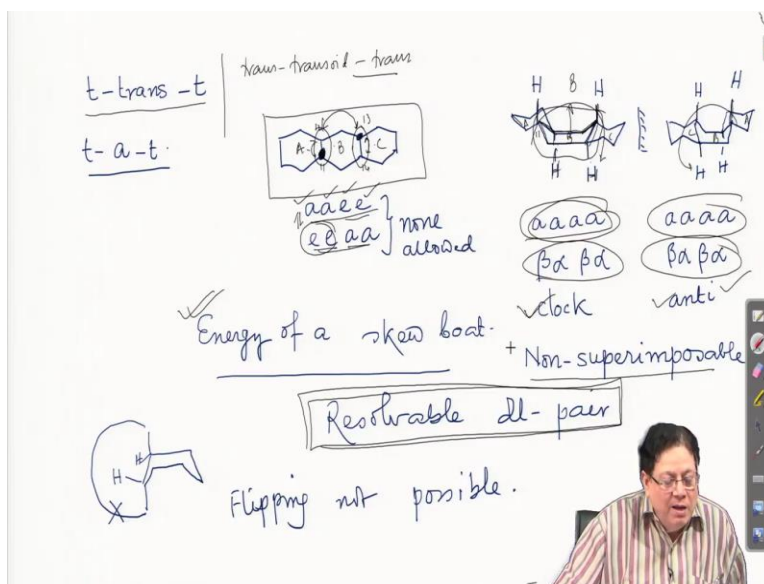 t-trans-t
trans-transoid-trans
t-a-t.
A B C
11 13 14
aaee
eeaa
none
allowed
H 8 H
H H
aaaa
βα βα
clock
H H
H H
aaaa
βα βα
anti
Energy of a skew boat.
+ Non-superimposable
Resolvable dl-pair
H H
X
Flipping not possible.